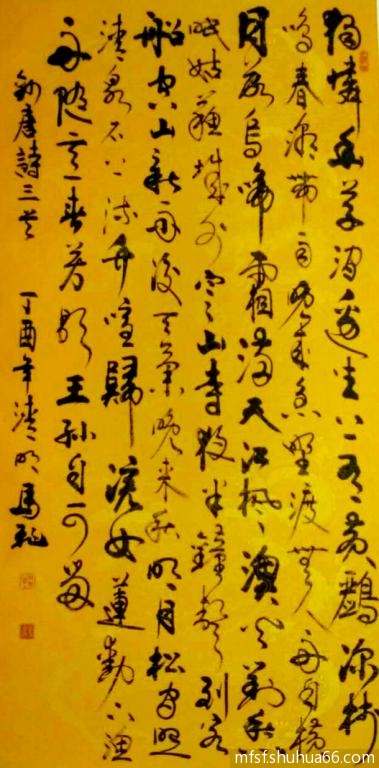 獨憐幽草澗邊生上有黃鸝深樹
鳴春潮帶雨晚來急野渡無人舟自橫
月落烏啼霜滿天江楓漁火對愁
眠姑蘇城外寒山寺夜半鐘聲到客
船空山新雨後天氣晚來秋明月松間照
清泉石上流竹喧歸浣女蓮動下漁
舟隨意春芳歇王孫自可留
錄唐詩三首 丁酉年清明馬
mfsfshuhua66.com